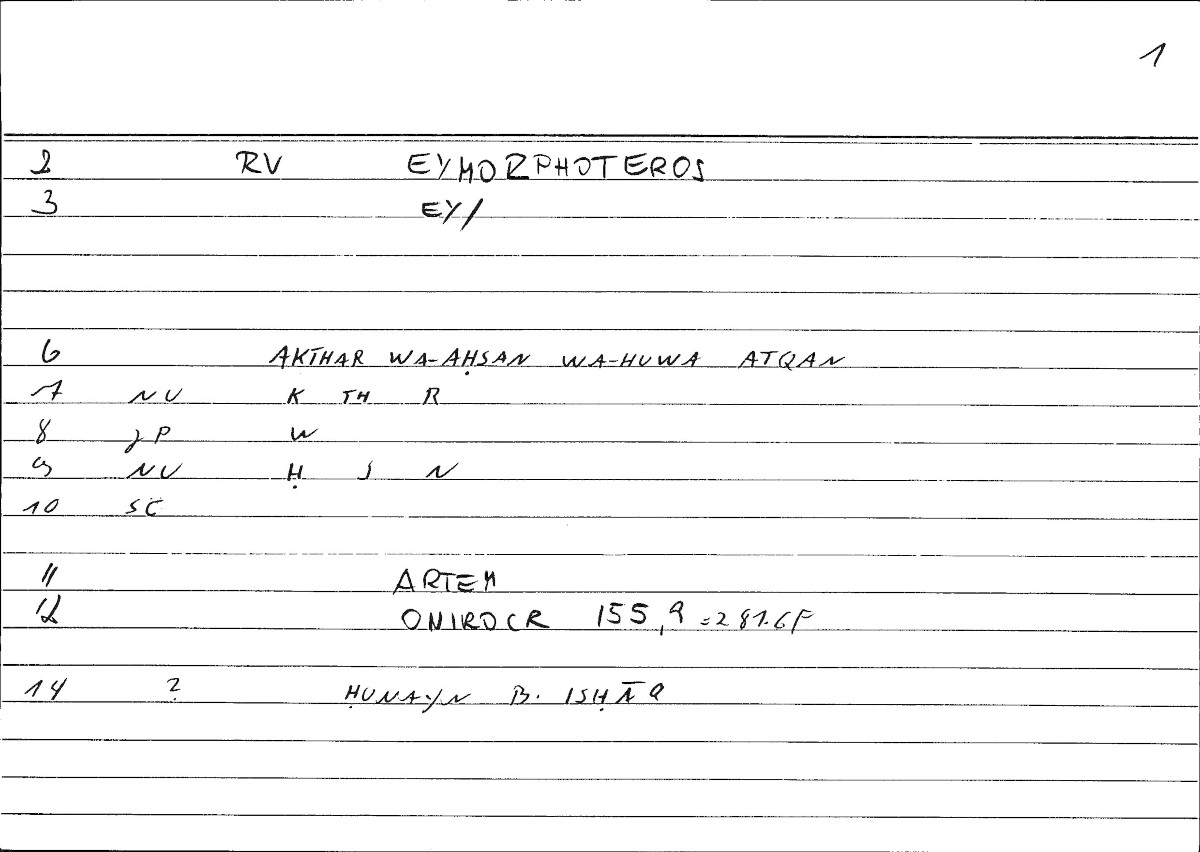 1
2 RV EYMORPHOTEROS
3 EY/
6 AKTHAR WA-AḤSAN WA-HUWA ATQAN
7 NU K TH R
8 JP W
9 NU Ḥ S N
10 SC
11 ARTEM
12 ONIROCR 155,9 = 281.6F
14 ? ḤUNAYN B. ISḤĀQ